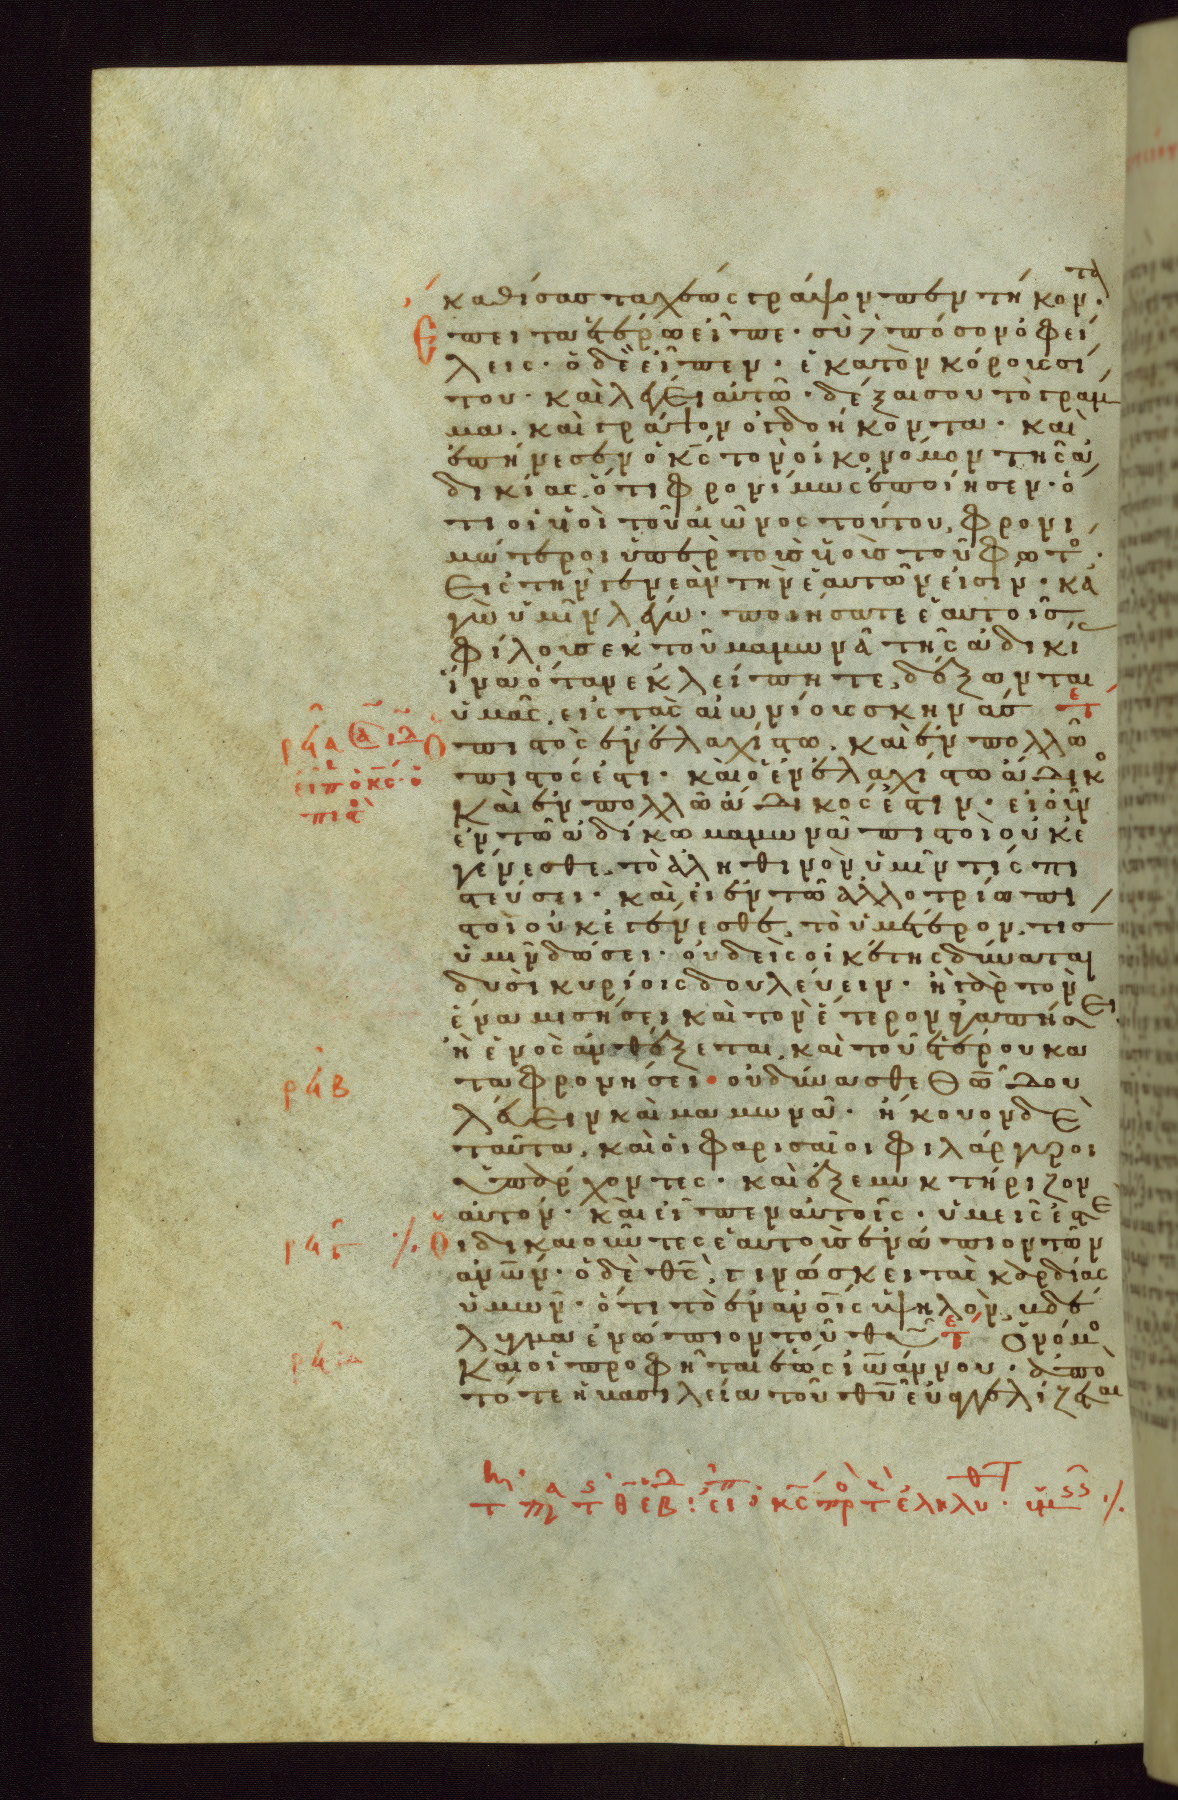 καθίσας ταχέως γράψον πεντήκοντα.
Ἔπειτα ἑτέρω εἶπε· σὺ δὲ πόσον ὀφεί
λεις· ὁ δὲ εἶπεν· ἑκατὸν κόρους σί
του· καὶ λέγει αὐτῶ· δέξαι σου τὸ γράμ
μα. καὶ γράψον ὀγδοήκοντα· καὶ
ἐπήνεσεν ὁ κς τὸν οἰκονόμον τῆς ἀ
δικίας, ὅτι φρονίμως ἐποίησεν· ὅ
τι οἱ υἱοὶ τοῦ αἰῶνος τούτου, φρονι
μώτεροι ὑπὲρ τοὺς υἱοὺς τοῦ φωτὸ·
εἰς τὴν γενεὰν τὴν ἑαυτῶν εἰσίν· κἀ
γὼ ὑμῖν λέγω· ποιήσατε ἑαυτοῖς
φίλους ἐκ τοῦ μαμωνᾶ τῆς ἀδικί
ἵνα ὅταν ἐκλείπητε, δέξωνται
ὑμᾶς, εἰς τὰς αἰωνίους σκηνάς τε
ρϟα Ὁ πιστὸς ἐν ἐλαχίστω. καὶ ἐν πολλῶ
εἶπ ὁ κς· ὁ πιστὸς ἐστι· καὶ ὁ ἐν ἐλαχίστω ἄδικο
πιστὸ καὶ ἐν πολλῶ ἄδικός ἐστιν· εἰ οὖν
ἐν τῶ ἀδίκω μαμωνᾶ πιστοὶ οὐκ ἐ
γένεσθε, τὸ ἀληθινὸν ὑμῖν τίς πι
στεύσει· καὶ εἰ ἐν τῶ ἀλλοτρίω πι
στοὶ οὐκ ἐγένεσθε, τὸ ὑμέτερον, τίς
ὑμῖν δώσει· οὐδεὶς οἰκέτης δύναται
δυσὶ κυρίοις δουλεύειν· ἢ γὰρ τὸν
ἕνα μισήσει καὶ τὸν ἕτερον ἀγαπήσει·
ἢ ἑνὸς ἀνθέξεται, καὶ τοῦ ἑτέρου κα
ρϟβ ταφρονήσει· οὐ δύνασθε θῶ δου
λεύειν καὶ μαμωνᾶ· ἤκουον δὲ
ταῦτα, καὶ οἱ φαρισαῖοι φιλάργυροι
ὑπάρχοντες· καὶ ἐξεμυκτήριζον
αὐτόν· καὶ εἶπεν αὐτοῖς· ὑμεῖς ἐστὲ
ρϟγ Οἱ δικαιοῦντες ἑαυτοὺς ἐνώπιον τῶν
ἀνων· ὁ δὲ θς, γινώσκει τὰς καρδίας
ὑμῶν· ὅτι τὸ ἐν ἀνοις ὑψηλὸν, βδέ
λυγμα ἐνώπιον τοῦ θυ τε Ὁ νόμο
καὶ οἱ προφῆται ἕως ἰωάννου· ἀπὸ
τότε ἡ βασιλεία τοῦ θυ εὐαγγελίζεται